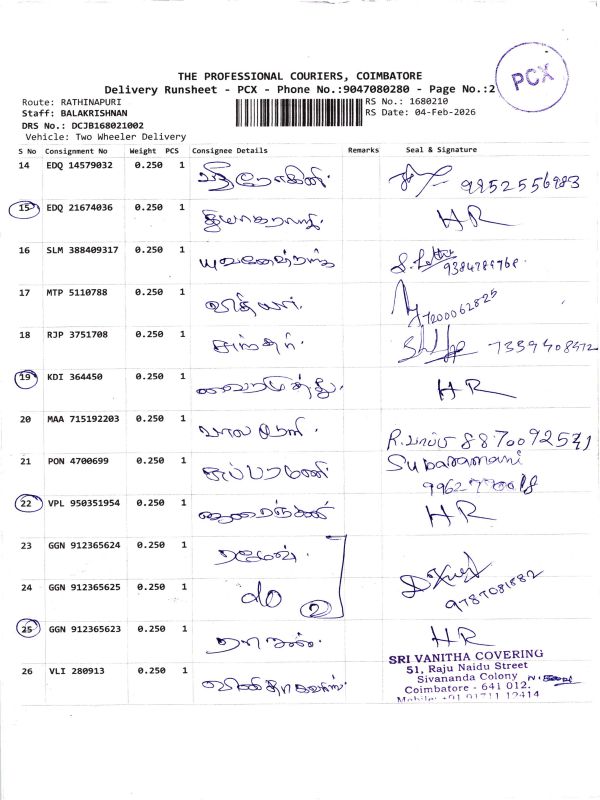 THE PROFESSIONAL COURIERS, COIMBATORE
Delivery Runsheet - PCX - Phone No.:9047080280 - Page No.:2
PCX
Route: RATHINAPURI
RS No.: 1680210
Staff: BALAKRISHNAN
RS Date: 04-Feb-2026
DRS No.: DCJB168021002
Vehicle: Two Wheeler Delivery
S No Consignment No Weight PCS Consignee Details Remarks Seal & Signature
14 EDQ 14579032 0.250 1 9952556983
15 EDQ 21674036 0.250 1 HR
16 SLM 388409317 0.250 1
17 MTP 5110788 0.250 1 7200062825
18 RJP 3751708 0.250 1 சுந்தர். 7339408972
19 KDI 364450 0.250 1 வைரமுத்து. HR
20 MAA 715192203 0.250 1 8870092571
21 PON 4700699 0.250 1 சுப்பரமணி. Subaramani
22 VPL 950351954 0.250 1 HR
23 GGN 912365624 0.250 1 ரமேஷ்.
24 GGN 912365625 0.250 1 do 2 9787081882
25 GGN 912365623 0.250 1 HR
26 VLI 280913 0.250 1
SRI VANITHA COVERING
51, Raju Naidu Street
Sivananda Colony
Coimbatore - 641 012.
Mobile: +91 91711 12414